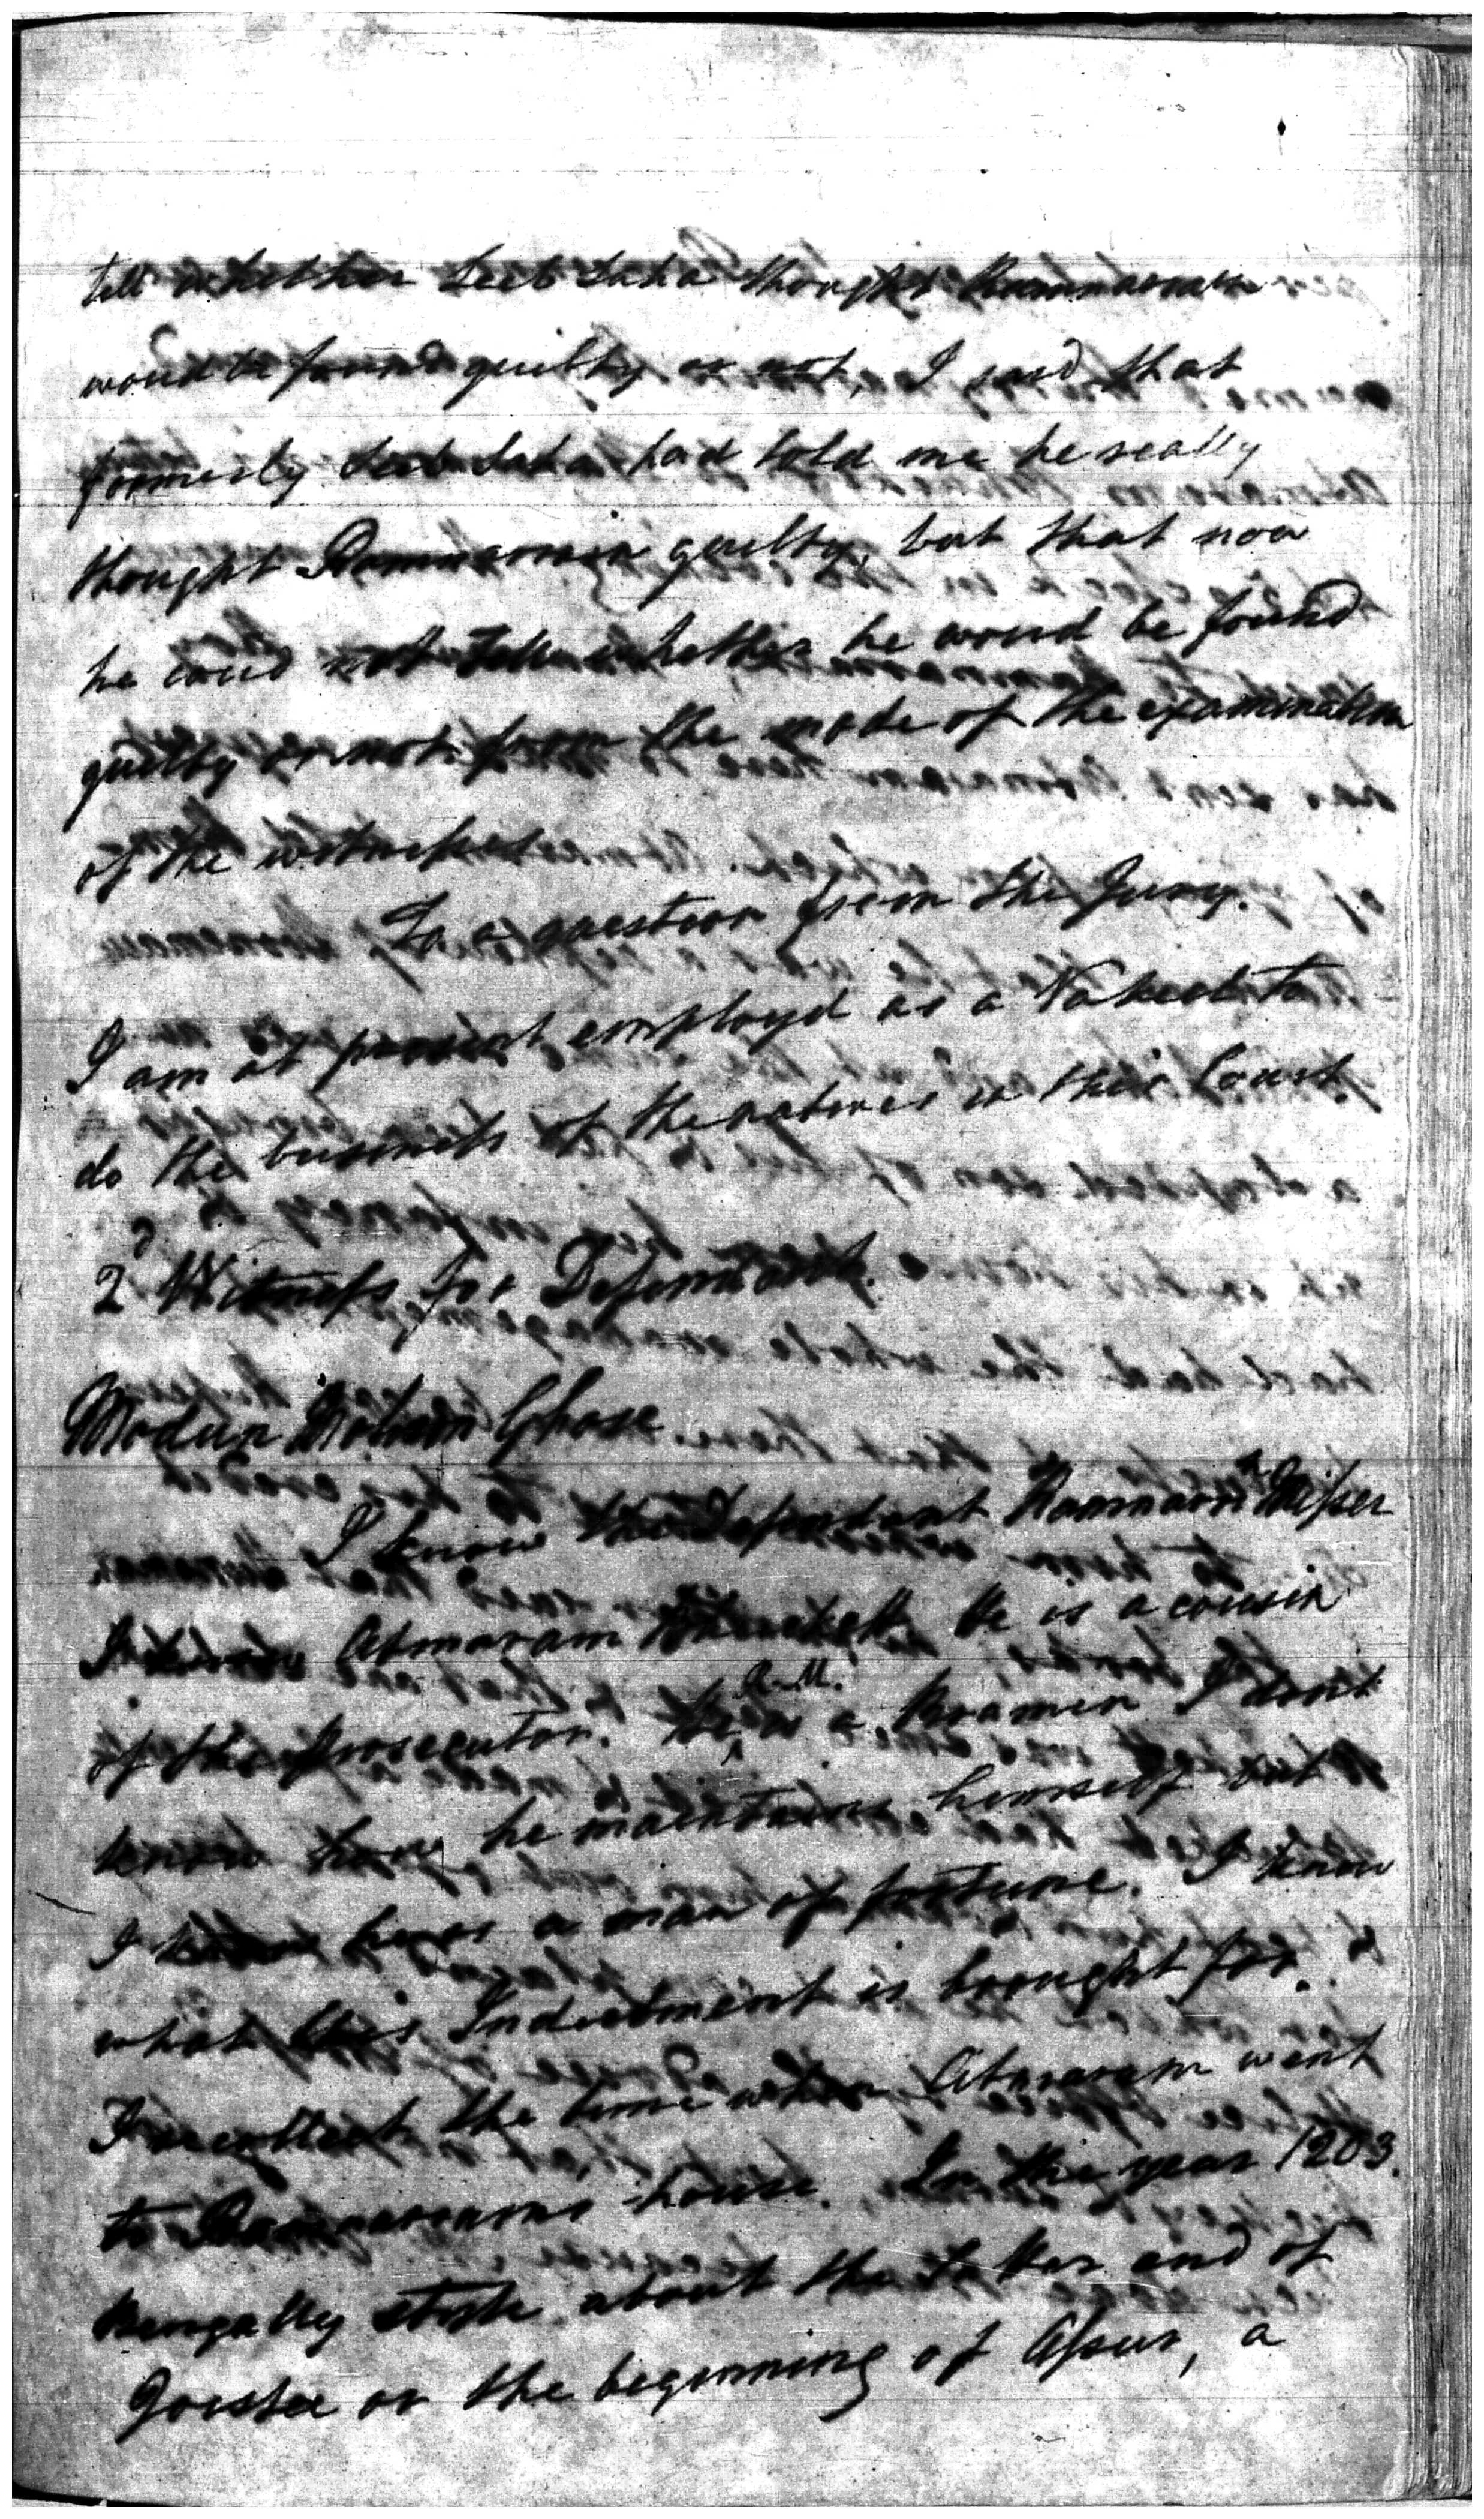 tell whether Seeb Saha thought Ramnarain
woud be found guilty or not, I said that
formerly Seeb Saha had told me he really
thought Ramnarain guilty, but that now
he coud not tell whether he woud be found
guilty or not from the mode of the examination
of the witnesses
To a question from the Jury.
I am at present employd as a Vakeel to
do the business of the natives in this Court.
2d Witness for Defendant.
Modun Mohun Ghose.
I know the Defendant Ramnarn Misser
I know Atmaram he is a cousin
of the Prosecutor. he R. M. is a Bramin I dont
know how he maintains himself but
I know he was a man of fortune. I know
what this Indictment is brought for.
I recollect the time when Atmaram went
to Ramnarains house. In the year 1203.
Bengally style about the latter end of
Joistee or the beginning of Assar, a